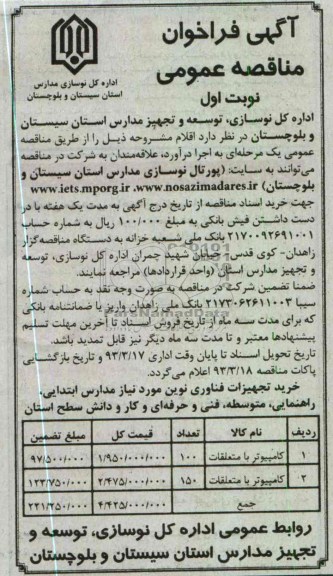 آگهی فراخوان
مناقصه عمومی
نوبت اول
اداره کل نوسازی مدارس
استان سیستان و بلوچستان
اداره کل نوسازی، توسعه و تجهیز مدارس استان سیستان
و بلوچستان در نظر دارد اقلام مشروحه ذیل را از طریق مناقصه
عمومی یک مرحله‌ای به اجرا درآورد، علاقه‌مندان به شرکت در مناقصه
می‌توانند به سایت: (پورتال نوسازی مدارس استان سیستان و
بلوچستان) www.iets.mporg.ir ،www.nosazimadares.ir
جهت خرید اسناد مناقصه از تاریخ درج آگهی به مدت یک هفته با در
دست داشتن فیش بانکی به مبلغ ۱۰۰/۰۰۰ ریال به شماره حساب
۲۱۷۰۰۹۲۶۹۱۰۰۱ بانک ملی شعبه خزانه به دستگاه مناقصه‌گزار
زاهدان- کوی قدس- خیابان شهید چمران اداره کل نوسازی، توسعه
و تجهیز مدارس استان (واحد قراردادها) مراجعه نمایند.
ضمنا تضمین شرکت در مناقصه به صورت وجه نقد به حساب شماره
سیبا ۲۱۷۳۰۶۲۶۱۱۰۰۳ بانک ملی زاهدان واریز یا ضمانتنامه بانکی
که برای مدت سه ماه از تاریخ فروش اسناد تا آخرین مهلت تسلیم
پیشنهادها معتبر و تا مدت سه ماه دیگر نیز قابل تمدید باشد.
تاریخ تحویل اسناد تا پایان وقت اداری ۹۳/۳/۱۷ و تاریخ بازگشایی
پاکات مناقصه ۹۳/۳/۱۸ اعلام می‌گردد.
خرید تجهیزات فناوری نوین مورد نیاز مدارس ابتدایی،
راهنمایی، متوسطه، فنی و حرفه‌ای و کار و دانش سطح استان
ردیف نام کالا تعداد قیمت کل مبلغ تضمین
۱ کامپیوتر با متعلقات ۱۰۰ ۱/۹۵۰/۰۰۰/۰۰۰ ۹۷/۵۰۰/۰۰۰
۲ کامپیوتر با متعلقات ۱۵۰ ۲/۴۷۵/۰۰۰/۰۰۰ ۱۲۳/۷۵۰/۰۰۰
جمع ۴/۴۲۵/۰۰۰/۰۰۰ ۲۲۱/۲۵۰/۰۰۰
روابط عمومی اداره کل نوسازی، توسعه و
تجهیز مدارس استان سیستان و بلوچستان